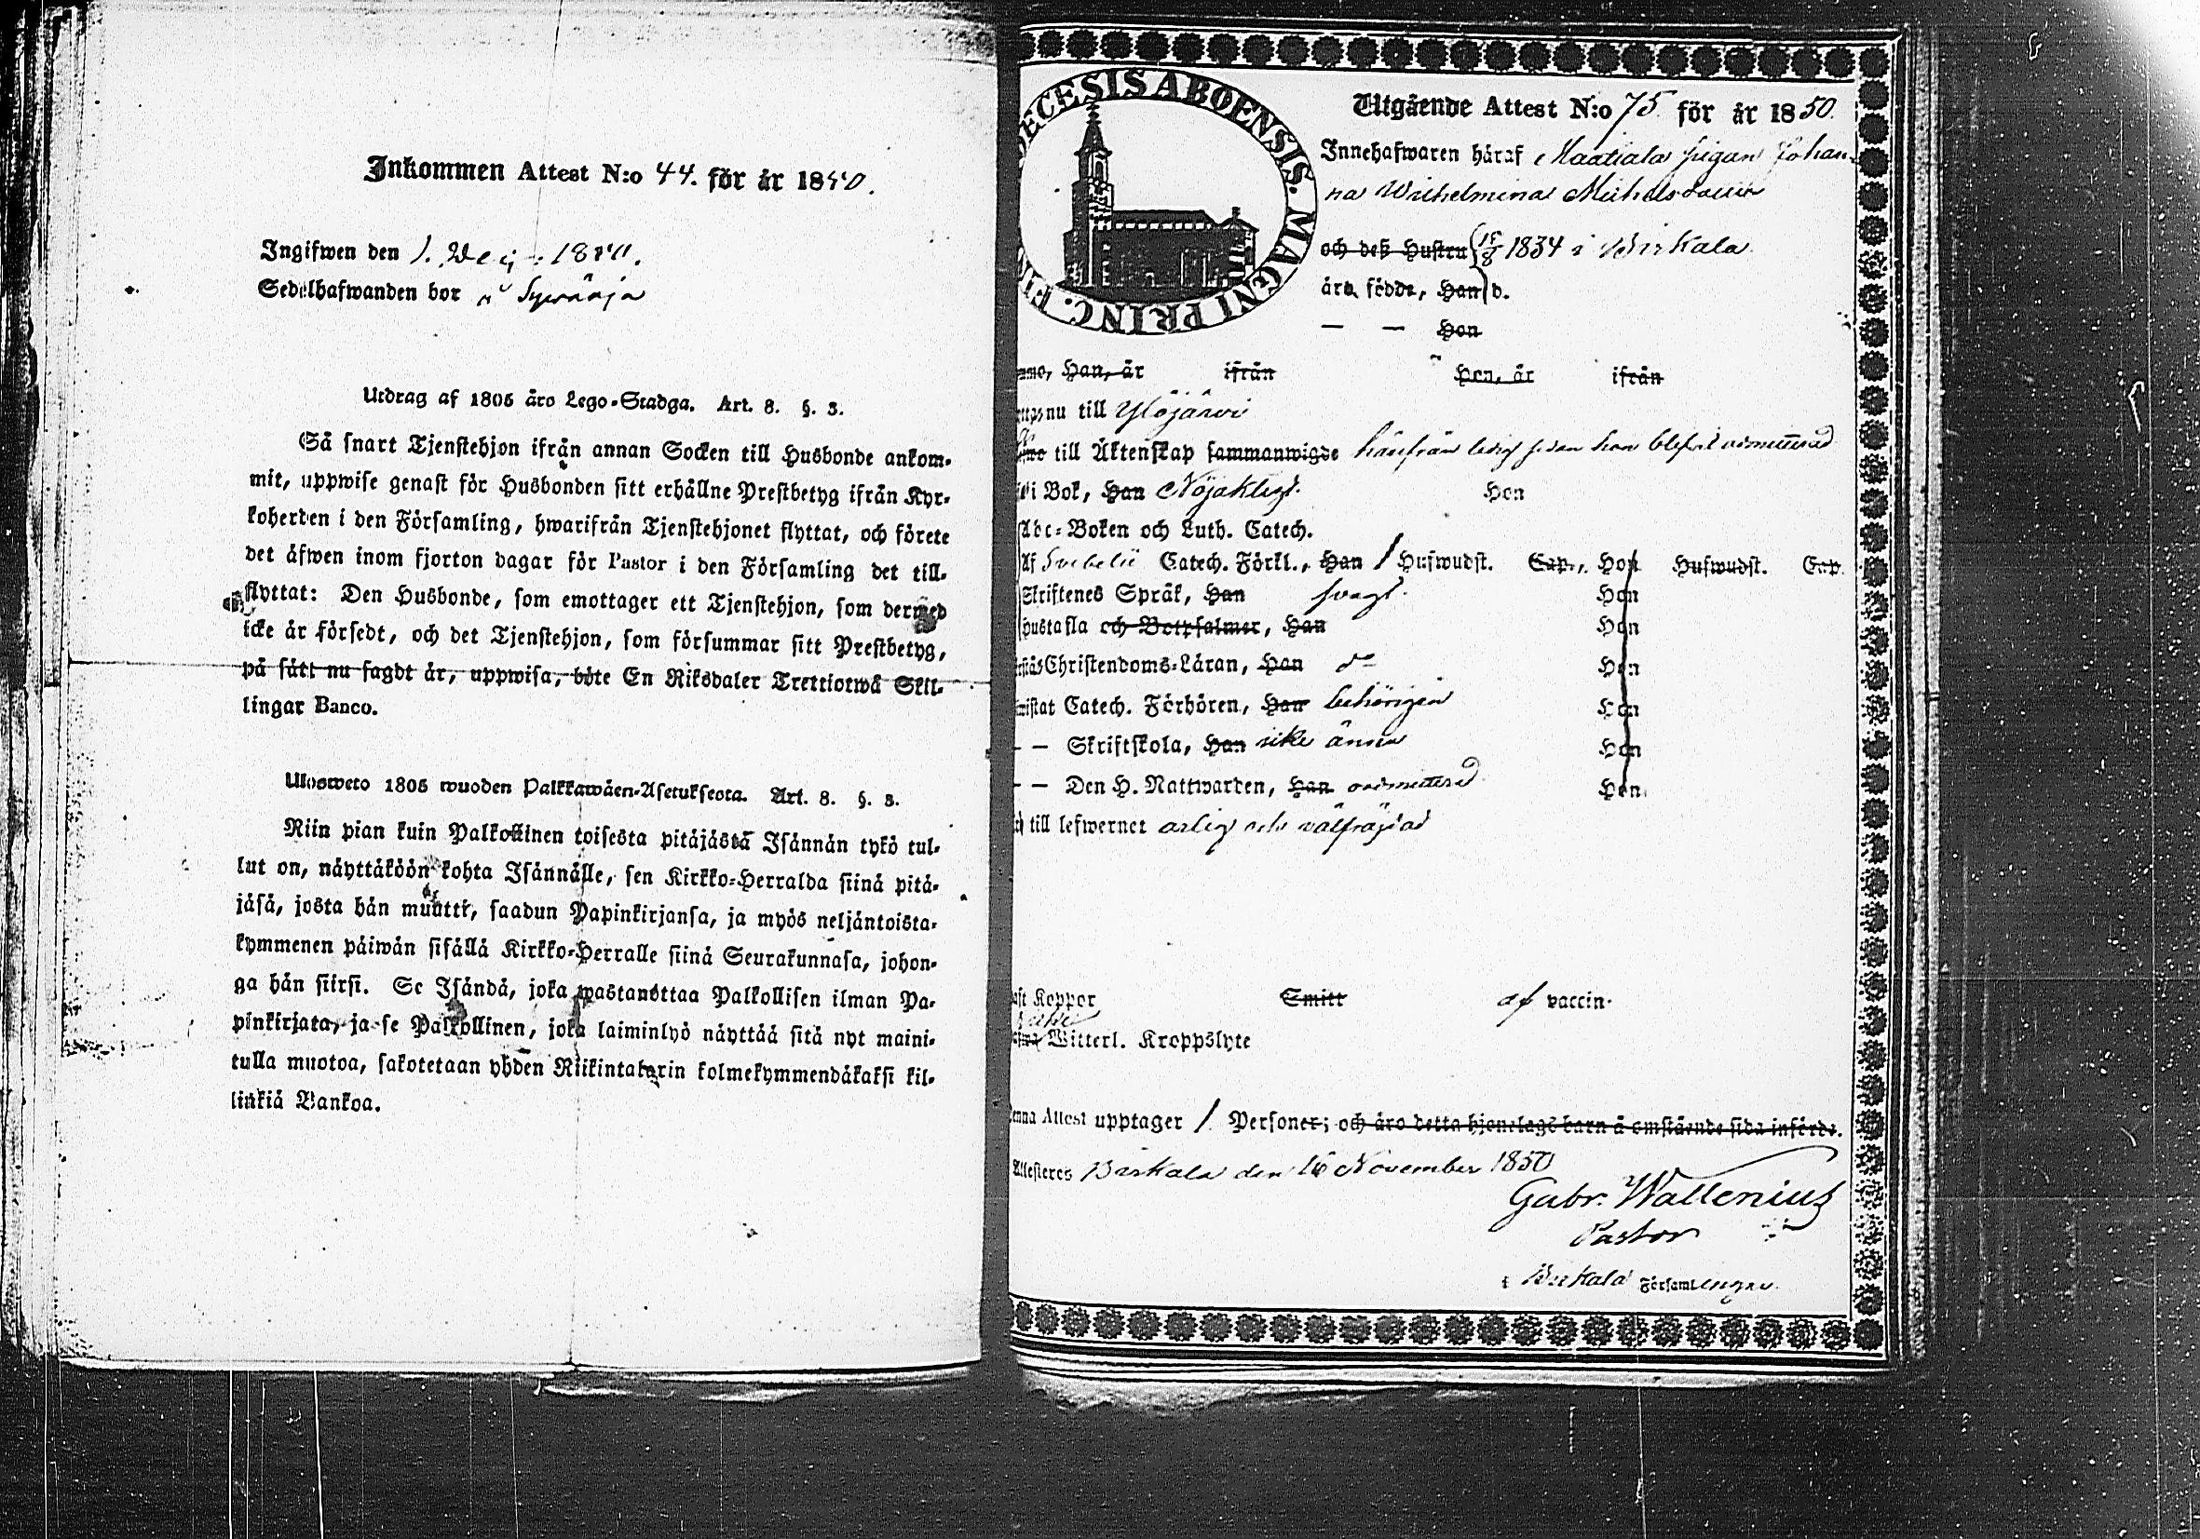 Inkommen Attest N:o 44. för år 1850.
Ingifwen den 1. 1850.
Sedelhafwanden bor
Utdrag af 1805 åro Lego-Stadga. Art. 8. §. 3.
Så snart Tjenstehjon ifrån annan Socken till Husbonde ankom-
mit, uppwise genast för Husbonden sitt erhållne Prestbetyg ifrån Kyr-
koherden i den Församling, hwarifrån Tjenstehjonet flyttat, och förete
det äfwen inom fjorton dagar för Pastor i den Församling det till-
flyttat: Den Husbonde, som emottager ett Tjenstehjon, som dermed
icke är försedt, och det Tjenstehjon, som försummar sitt Prestbetyg,
på sätt nu sagdt är, uppwisa, böte En Riksdaler Trettiotwå Skil-
lingar Banco.
Ulosweto 1805 wuoden Palkkawäen-Asetuksesta. Art. 8. §. 3.
Niin pian kuin Palkollinen toisesta pitäjästä Isännän tykö tul-
lut on, näyttäköön kohta Isännälle, sen Kirkko-Herralda siinä pitä-
jäsä, josta hän muutti, saadun Papinkirjansa, ja myös neljäntoista-
kymmenen päiwän sisällä Kirkko-Herralle siinä Seurakunnasa, johon-
ga hän siirsi. Se Isändä, joka wastanottaa Palkollisen ilman Pa-
pinkirjata, ja se Palkollinen, joka laiminlyö näyttää sitä nyt maini-
tulla muotoa, sakotetaan yhden Riikintalarin kolmekymmendäkaksi kil-
linkiä Bankoa.
DECESIS ABOENSIS. MAGNI PRINC.
Utgående Attest N:o 75 för år 1850.
Innehafwaren häraf Maatiala pigan Johan-
na Wilhelmina Michelsdotter
och deß Hustru 1834 i Birkala
äro födde, Han d.
— — Hon
Han, är ifrån Hon, är ifrån
nu till Ylöjärvi
till Äktenskap sammanwigde härifrån ledig sedan hon blifvit admitterad
i Bok, Han Nöjaktigt. Hon
Abc-Boken och Luth. Catech.
Af Svebelii Catech. Förkl., Han / Hufwudst. Cap., Hon Hufwudst. Cap.
Skriftenes Språk, Han svagt. Hon
Hustafla och Botpsalmer, Han Hon
Christendoms-Läran, Han d:o Hon
Catech. Förhören, Han behörigen Hon
— — Skriftskola, Han icke ännu Hon
— — Den H. Nattwarden, Han oadmitterad Hon
till lefwernet ärlig och välfräjdad
Koppor Smitt af vaccin.
icke
Witterl. Kroppslyte
Attest upptager 1 Personer; och äro detta hjonelags barn å omstående sida införde.
Attesteres Birkala den 16 November 1850
Gabr. Wallenius
Pastor
i Birkala Församlingen.